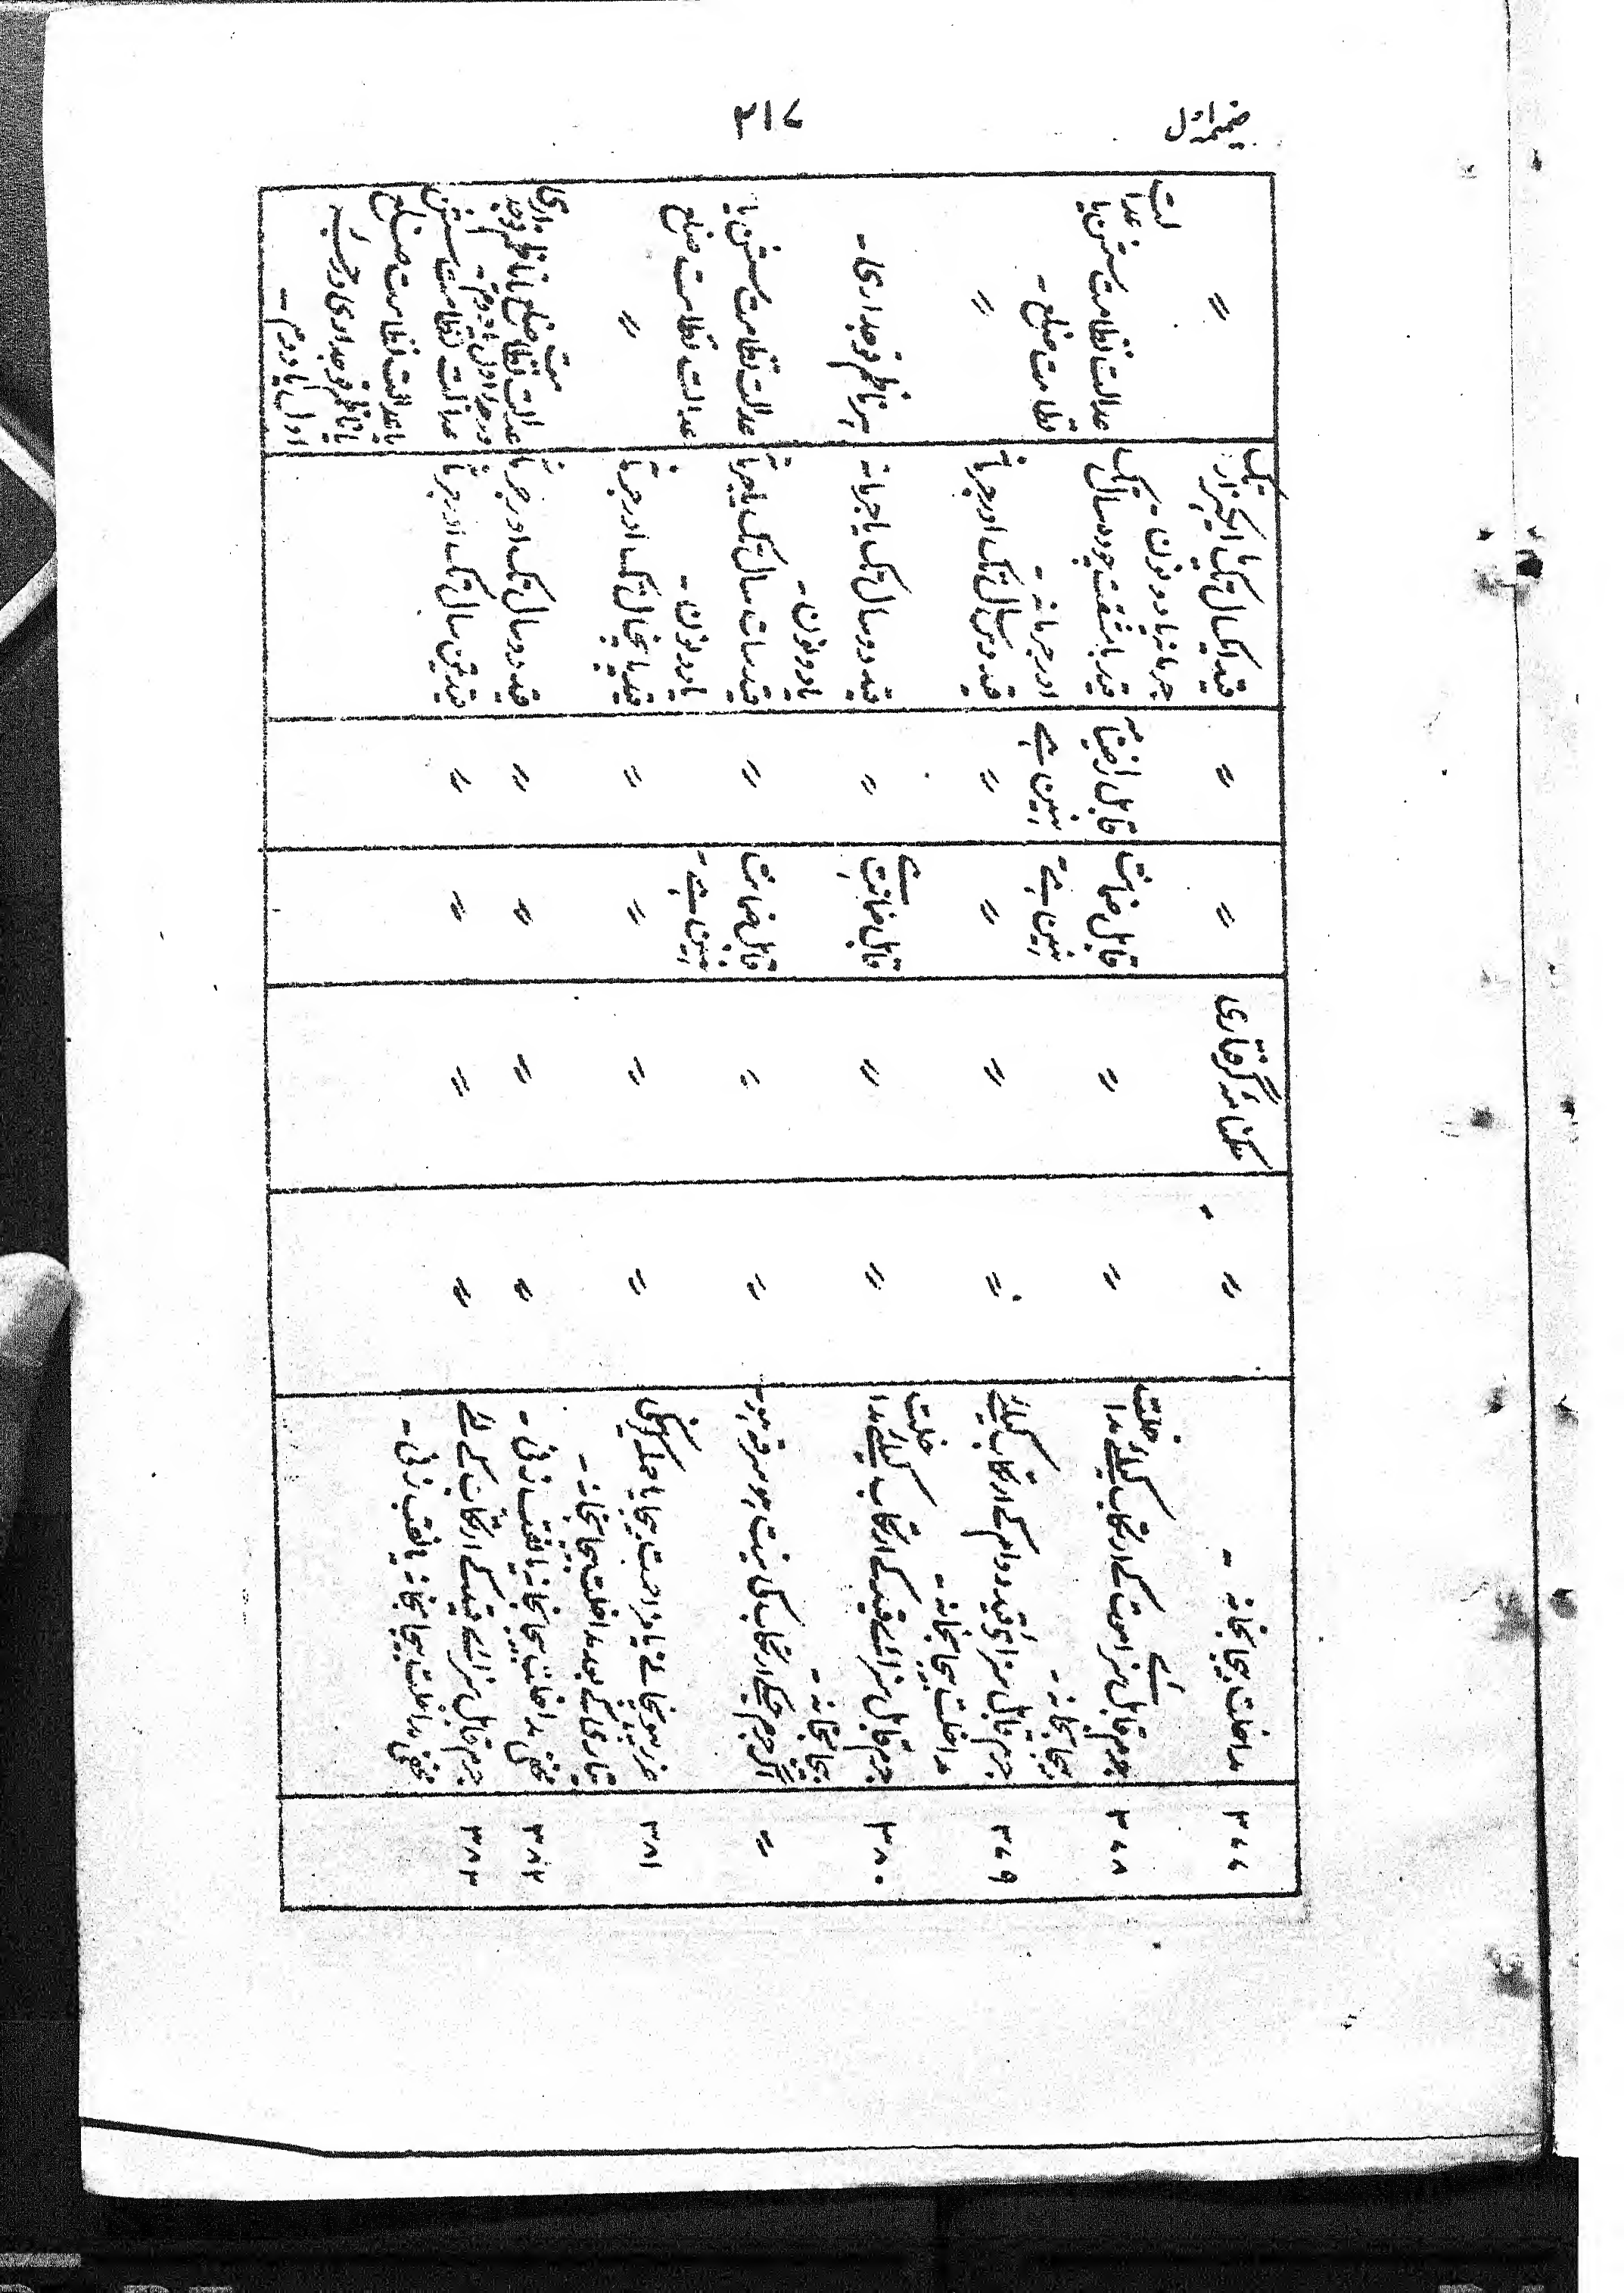 ضمیمہ اول
۳۱۷
۳۷۷
مداخلت بیجا بخانہ -
〃
حکمنامہ گرفتاری
〃
〃
قید ایکسال تک یا ایکہزار تک
جرمانہ یا دونون -
〃
۳۷۸
جرم قابل سزائے موت کے ارتکاب کیلئے مداخلت
بیجا بخانہ -
〃
〃
قابل ضمانت
نہین ہے
قابل راضینامہ
نہین ہے
قید بامشقت چودہ سال تک
اور جرمانہ -
عدالت نظامت سشن یا عدالت
نظامت ضلع -
۳۷۹
جرم قابل سزائے قید دوام کے ارتکاب کیلئے
مداخلت بیجا بخانہ -
〃
〃
〃
〃
قید دس سال تک اور جرمانہ
〃
۳۸۰
جرم قابل سزائے قید کے ارتکاب کیلئے مداخلت
بیجا بخانہ -
〃
〃
قابل ضمانت ہے
〃
قید دو سال تک یا جرمانہ
یا دونون -
ہر ناظم فوجداری -
〃
اگر جرم جسکے ارتکاب کی نیت ہو سرقہ ہو
〃
〃
قابل ضمانت
نہین ہے -
〃
قید سات سال تک یا جرمانہ
یا دونون -
عدالت نظامت سشن یا
عدالت نظامت ضلع
۳۸۱
ضرر پہونچانے یا مزاحمت بیجا یا حملہ کرنیکی
تیاری کے بعد مداخلت بیجا بخانہ -
〃
〃
〃
〃
قید پانچسال تک اور جرمانہ
〃
۳۸۲
مخفی مداخلت بیجا بخانہ یا نقب زنی -
〃
〃
〃
〃
قید دو سال تک اور جرمانہ
عدالت نظامت ضلع یا ناظم فوجداری
درجہ اول یا دوم -
۳۸۳
جرم قابل سزائے قید کے ارتکاب کے لئے
مخفی مداخلت بیجا بخانہ یا نقب زنی -
〃
〃
〃
〃
قید تین سال تک اور جرمانہ
عدالت نظامت سشن
یا عدالت نظامت ضلع
یا ناظم فوجداری درجہ
اول یا دوم -